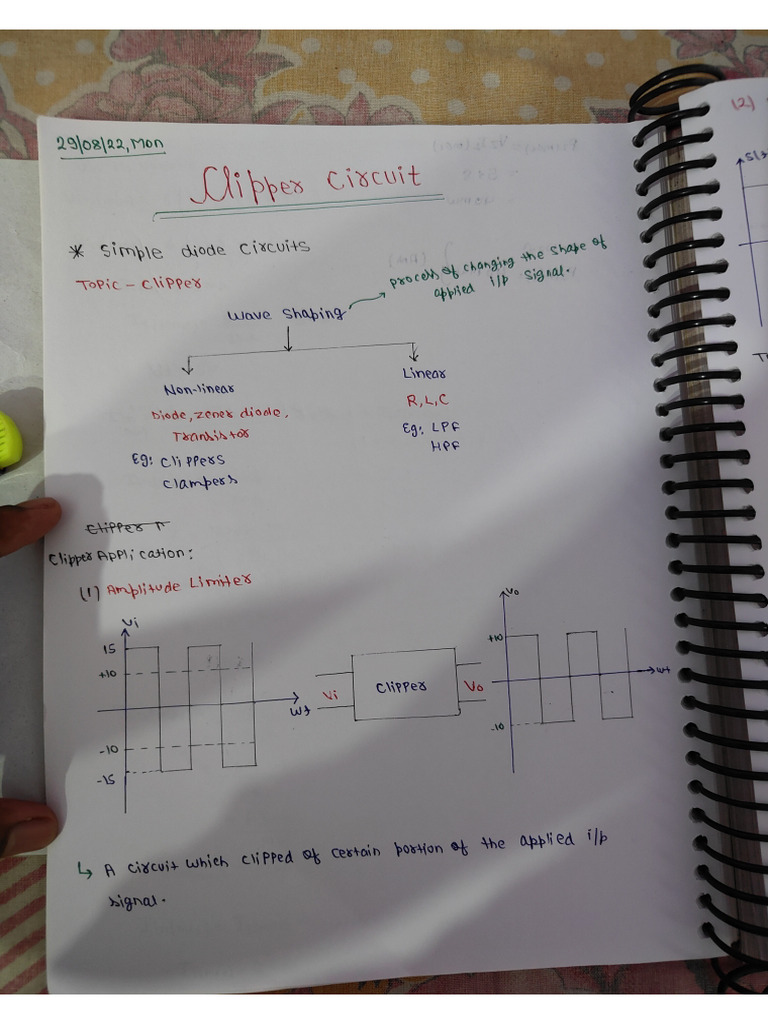 29/08/22, Mon
Clipper Circuit
* Simple diode circuits
Topic - Clipper
process of changing the shape of
applied i/p signal.
Wave Shaping
Non-linear
Linear
Diode, zener diode,
Transistor
R, L, C
Eg: Clippers
Clampers
Eg: LPF
HPF
Clipper
Clipper Application:
(1) Amplitude Limiter
Vi
15
+10
-10
-15
wt
Vi
Clipper
Vo
Vo
+10
-10
wt
↳ A circuit which clipped of certain portion of the applied i/p
signal.
(2)